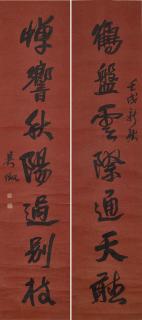 鶴盤雲際通天聽
壬戌新秋
蟬響秋陽過別枝